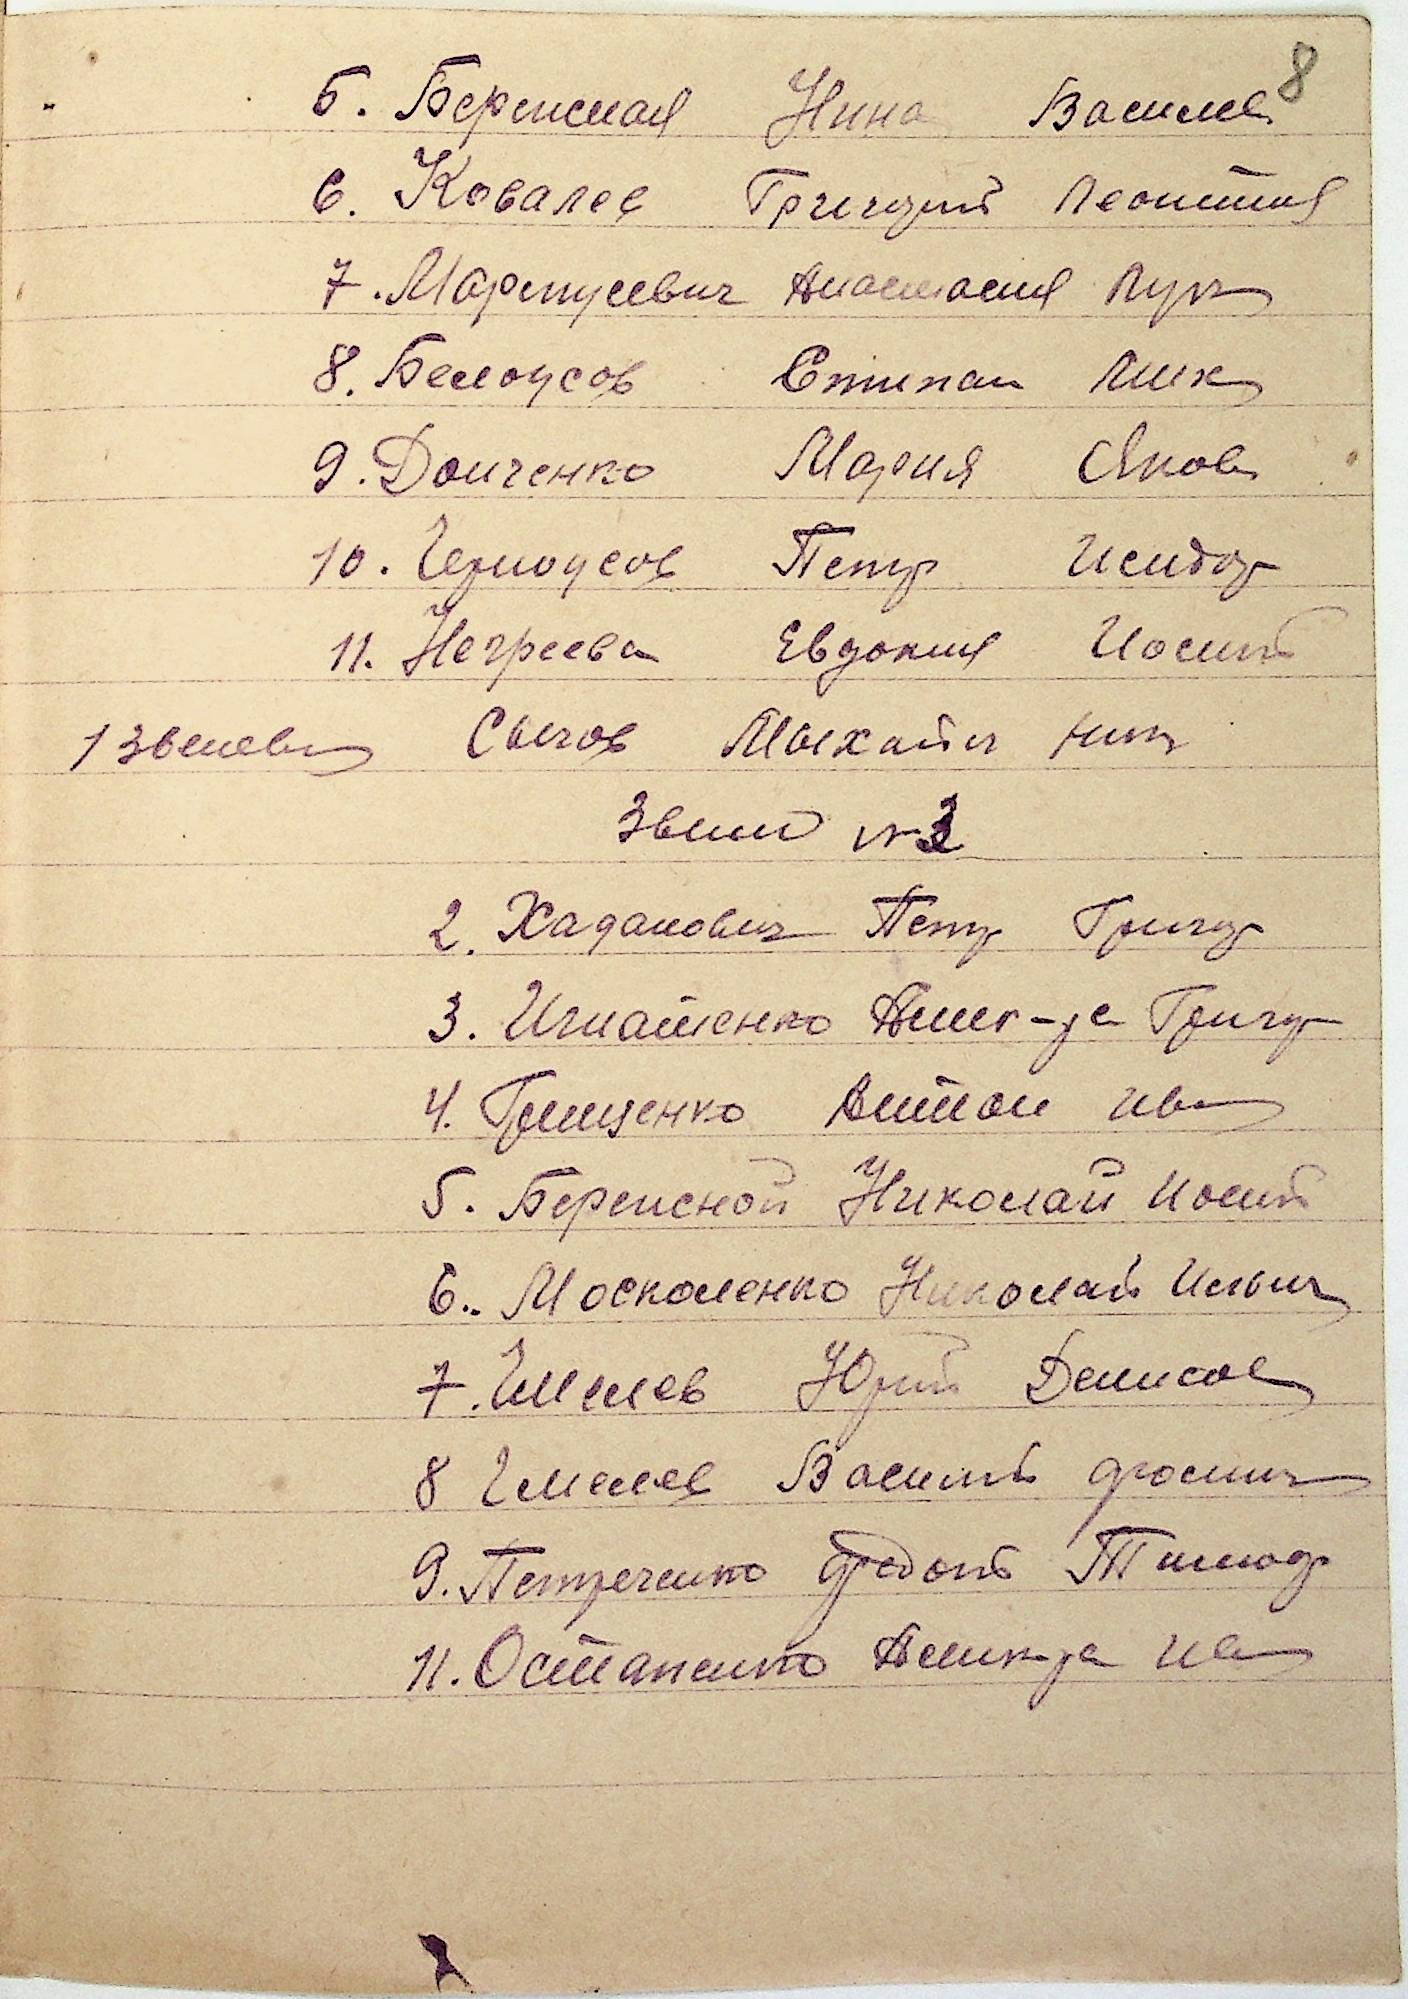 8
5. Бережная Нина Василев
6. Ковалев Григорий Леонтиев
7. Марпусевич Анастасия Лук
8. Белоусов Стипан Мик
9. Донченко Мария Яков
10. Черноусов Петр Исидор
11. Негреева Евдокия Иосип
1 звенев Сычов Мыхайл Ник
Звино № 3
2. Хаданович Петр Григор
3. Игнатенко Алек-др Григор
4. Грищенко Антон Ив
5. Бережной Николай Иосип
6. Москаленко Николай Ильич
7. Чмелев Юрий Денисов
8 Чмелев Василий Фомич
9. Петреченко Федот Тимоф
11. Остапенко Алек-др Ив